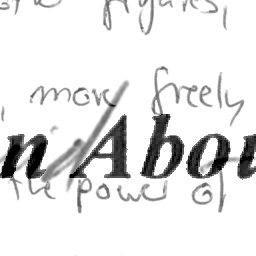 figures,
, more freely
n Abou
the power of